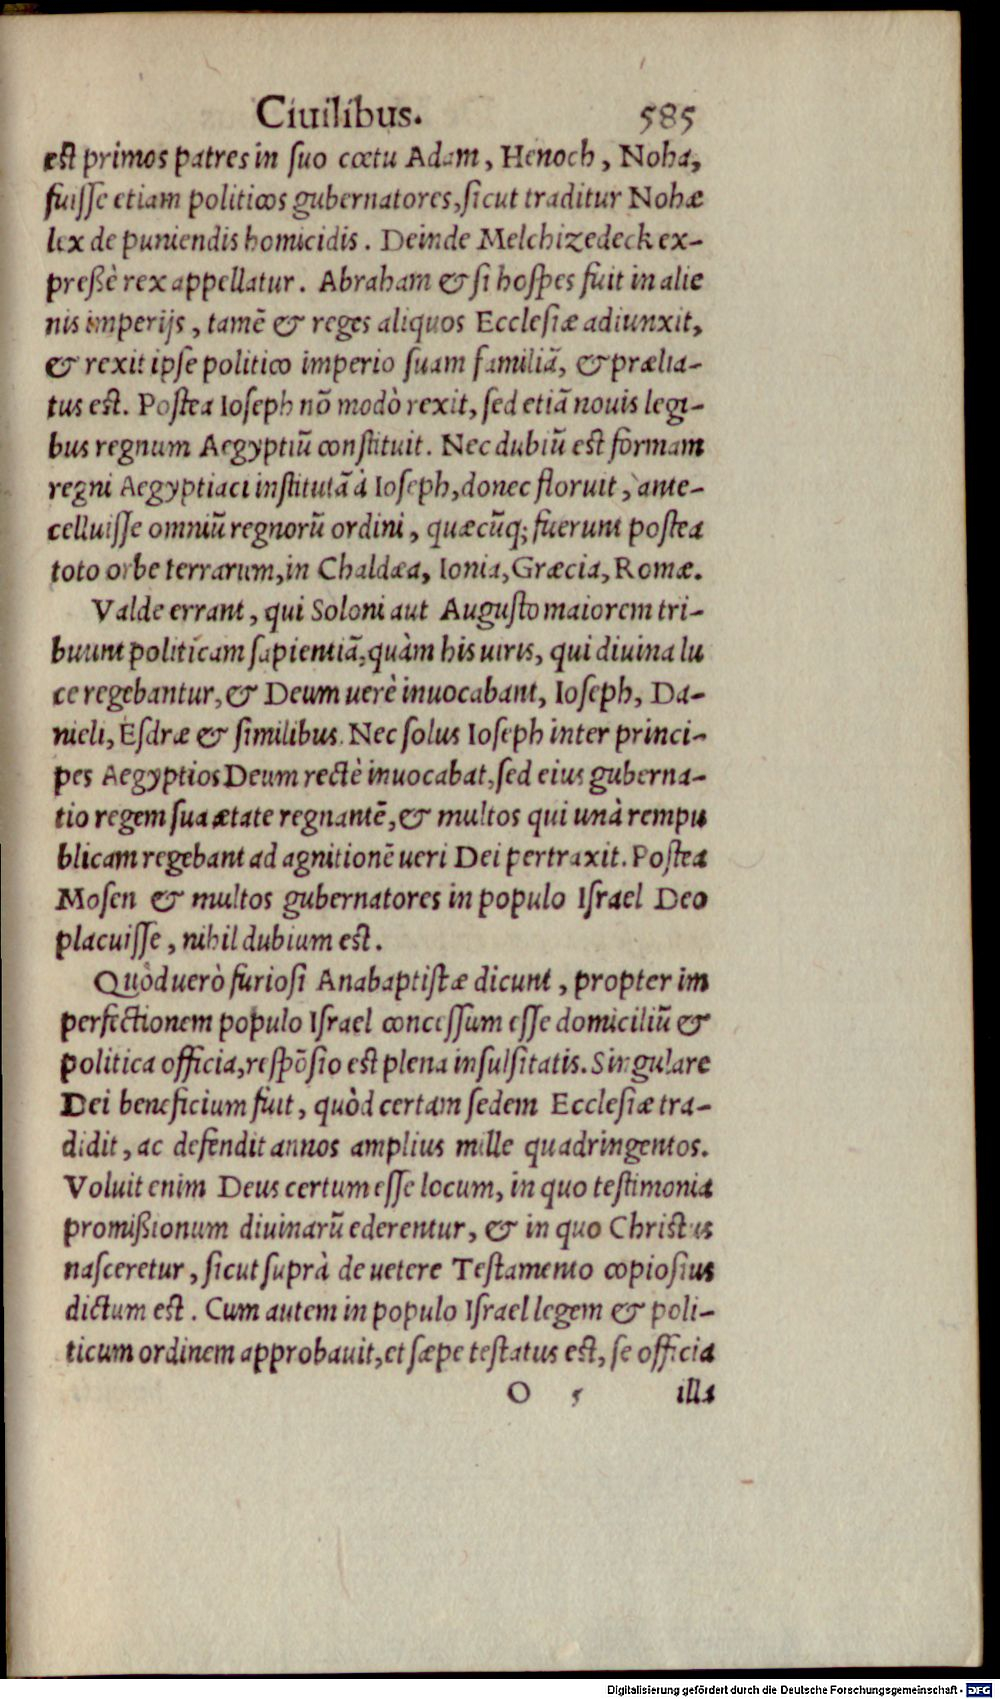 Ciuilibus. 585
est primos patres in suo cœtu Adam, Henoch, Noha,
fuisse etiam politicos gubernatores, sicut traditur Nohæ
lex de puniendis homicidis. Deinde Melchizedeck ex-
preßè rex appellatur. Abraham & si hospes fuit in alie
nis imperijs, tamē & reges aliquos Ecclesiæ adiunxit,
& rexit ipse politico imperio suam familiā, & prælia-
tus est. Postea Ioseph nō modò rexit, sed etiā nouis legi-
bus regnum Aegyptiū constituit. Nec dubiū est formam
regni Aegyptiaci institutā à Ioseph, donec floruit, ante-
celluisse omniū regnorū ordini, quæcūq; fuerunt postea
toto orbe terrarum, in Chaldæa, Ionia, Græcia, Romæ.
Valde errant, qui Soloni aut Augusto maiorem tri-
buunt politicam sapientiā, quàm his uiris, qui diuina lu
ce regebantur, & Deum uerè inuocabant, Ioseph, Da-
nieli, Esdræ & similibus. Nec solus Ioseph inter princi-
pes Aegyptios Deum rectè inuocabat, sed eius guberna-
tio regem sua ætate regnantē, & multos qui unà rempu
blicam regebant ad agnitionē ueri Dei pertraxit. Postea
Mosen & multos gubernatores in populo Israel Deo
placuisse, nihil dubium est.
Quòd uerò furiosi Anabaptistæ dicunt, propter im
perfectionem populo Israel concessum esse domiciliū &
politica officia, respōsio est plena insulsitatis. Singulare
Dei beneficium fuit, quòd certam sedem Ecclesiæ tra-
didit, ac defendit annos amplius mille quadringentos.
Voluit enim Deus certum esse locum, in quo testimonia
promißionum diuinarū ederentur, & in quo Christus
nasceretur, sicut suprà de uetere Testamento copiosius
dictum est. Cum autem in populo Israel legem & poli-
ticum ordinem approbauit, et sæpe testatus est, se officia
O 5 illa
Digitalisierung gefördert durch die Deutsche Forschungsgemeinschaft - DFG